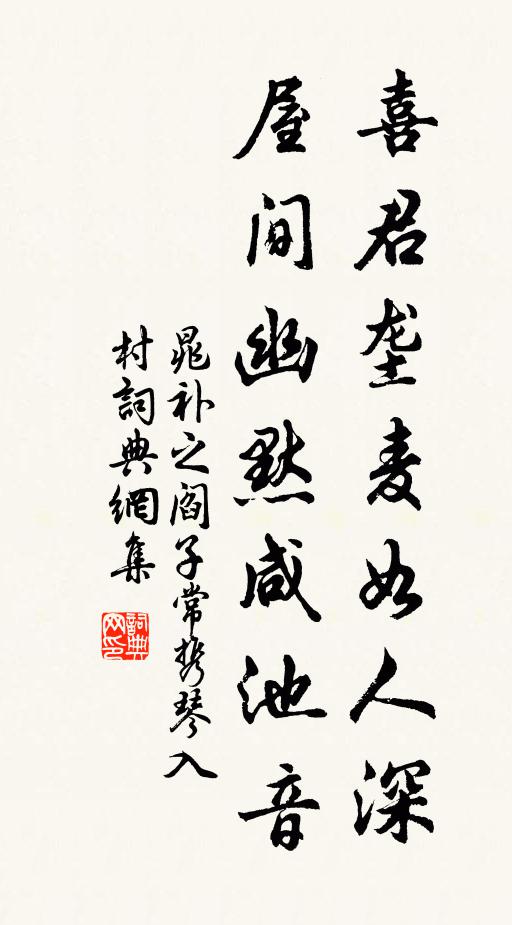 喜君垄麦如人深
屋间幽默咸池音
晁补之阎子常携琴入
村詞典網集
詞典网印